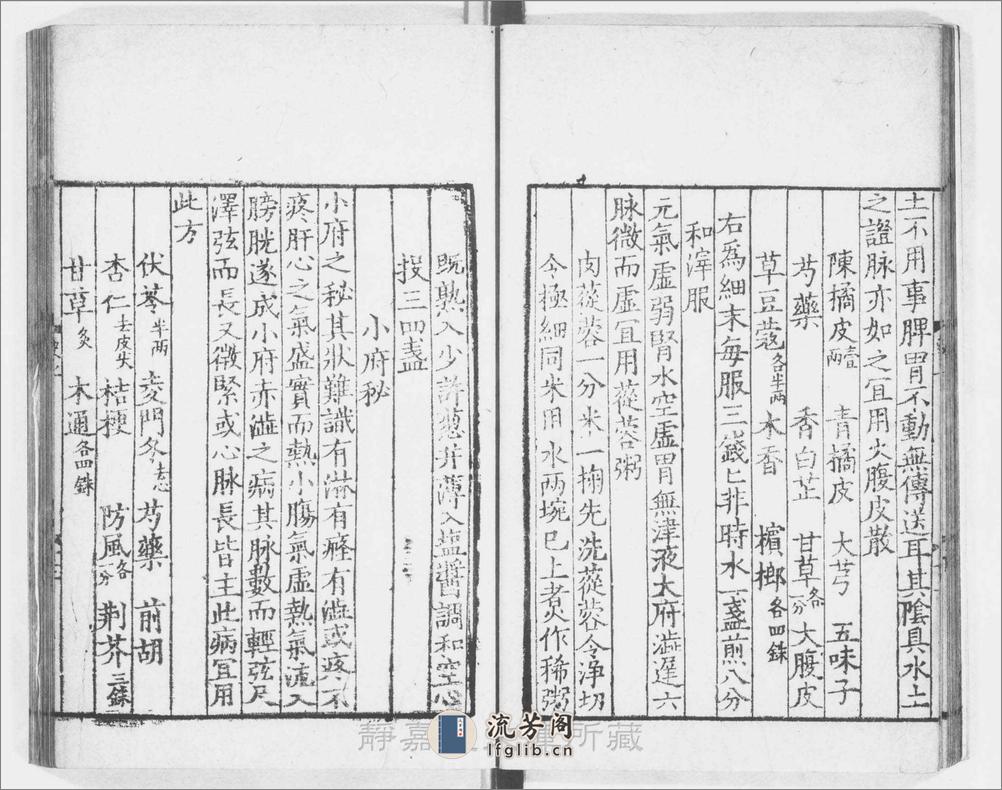 土不用事脾胃不動無傳送耳其隂具水上
之證脉亦如之宜用大腹皮散
陳橘皮壹兩 青橘皮 大芎 五味子
芍藥 香白芷 甘草各一分 大腹皮
草豆蔻各半兩 木香 檳榔各四銖
右爲細末每服三錢匕非時水一盞煎八分
和滓服
元氣虛弱腎水空虛胃無津液大府澁遲六
脉微而虛宜用蓯蓉粥
肉蓯蓉一分米一掬先洗蓯蓉令淨切
令極細同米用水兩埦已上煮作稀粥
既熟入少許葱并薄入塩醬調和空心
投三四盞
小府秘
小府之秘其狀難識有淋有癃有澁或疼不
疼肝心之氣盛實而熱小膓氣虛熱氣流入
膀胱遂成小府赤澁之病其脉數而輕弦尺
澤弦而長又微緊或心脉長皆主此病宜用
此方
伏苓半兩 麦門冬去心 芍藥 前胡
杏仁去皮尖 桔梗 防風各一分 荆芥三銖
甘草炙 木通各四銖
静嘉 所藏
流芳阁
lfglib.cn